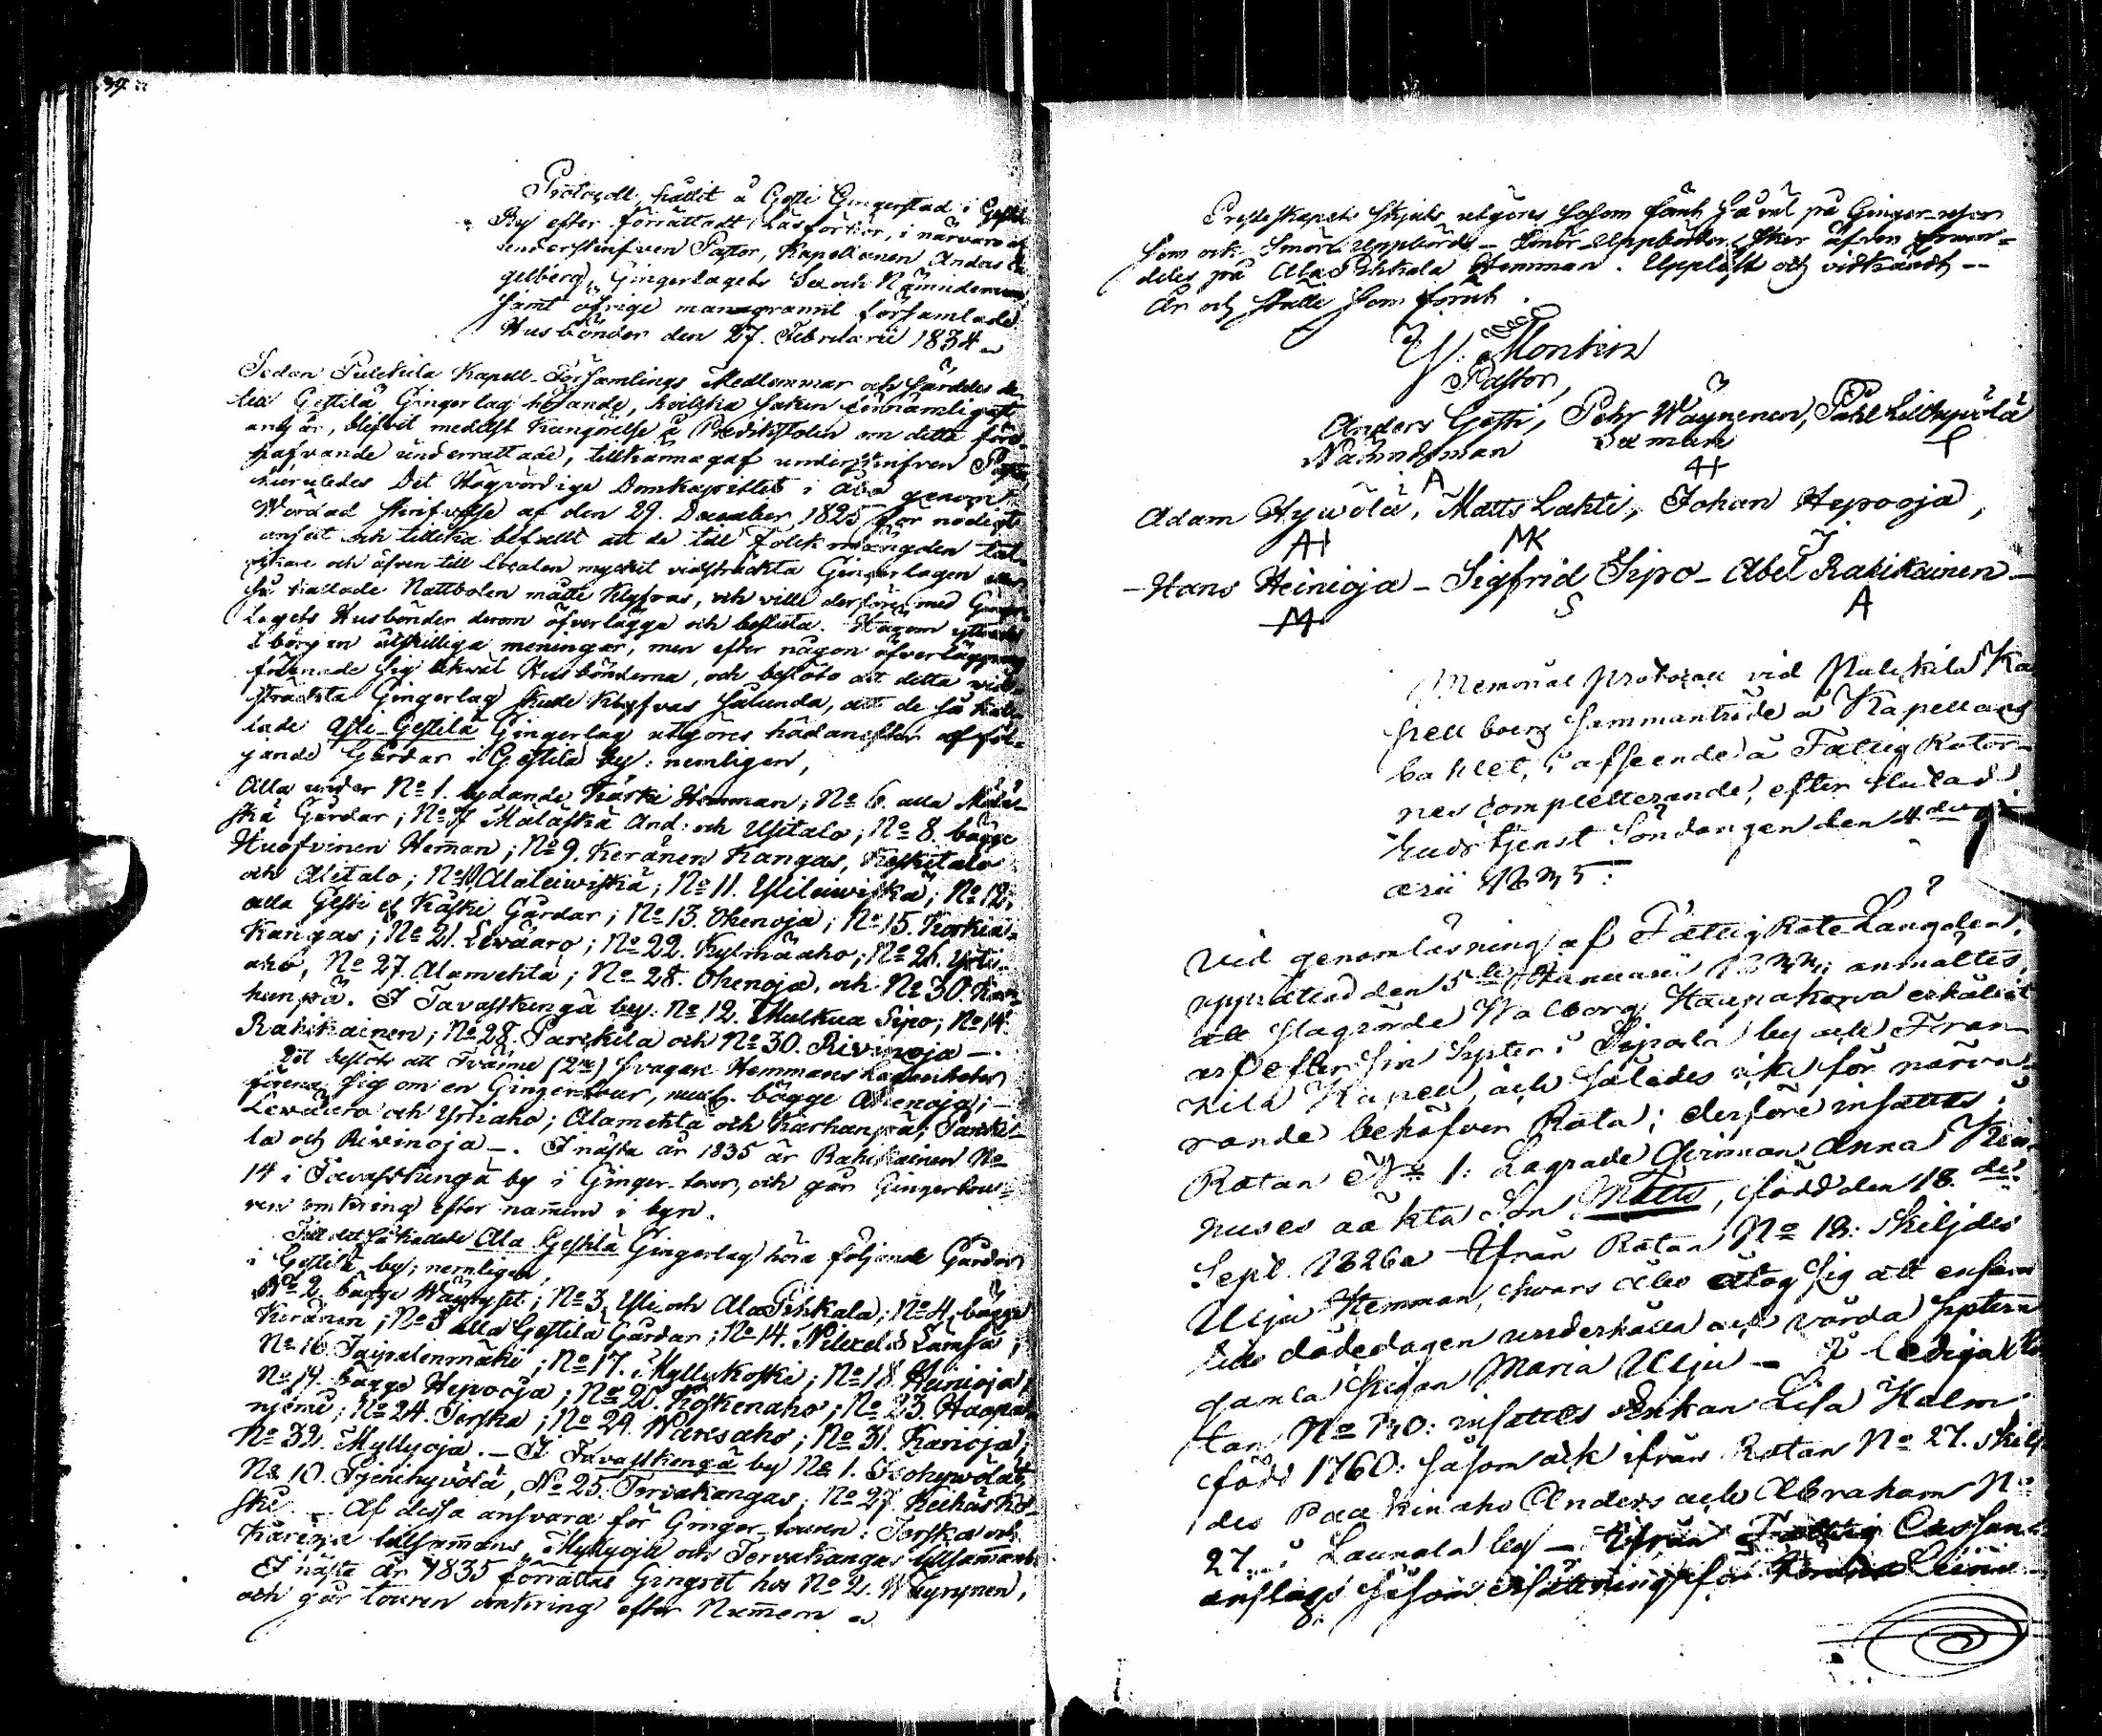 39
Protocoll, hållit å Gesti Gingerstad i Gestilä
By efter förrättadt Läsförhör, i närvaro af
undersckrifven Pastor, Kapellanen Anders
gelberg, Gingerlagets Sex och Nämndemän
samt öfrige mangrannt församlade
Husbönder den 27. Februarii 1834
Sedan Pulckila Kapell-Församlings Medlemmar och särdeles de
till Gestilä Gingerlag hörande, hvilcka saken einnämligast
angår, blifvit medelst Kungörelse å Predikstolen om detta före-
hafvande underrättade, tillkännagaf underskrifven Pastor
huruledes Det Högvördige Domkapitlet i Åbo genom
Wördad skrifvelse af den 29. December 1825 för nödigt
ansett och tillika befallt att de till folkmängden tal-
rikare och äfven till localen mycket vidsträckta Gingerlagen eller
så kallade Nattbolen måtte klyfvas, och ville derföre med Ginger-
Lagets Husbönder derom öfverlägga och besluta. Härom yttrades
i början åtskilliga meningar, men efter någon öfverläggning
förenade sig likväl Husbönderna, och beslöto att detta vid-
sträckta Gingerlag skulle klyfvas sålunda, att de så kal-
lade Yli-Gestilä Gingerlag utgöres hädanefter af föl-
jande Gårdar i Gestilä by: nemligen,
Alla under No 1. lydande Kärki Hemman; No 6. alla Mäläs-
kä Gårdar; No 7 Mäläskä And: och Ylitalo; No 8. bägge
Huofvinen Heman; No 9. Keränen Kangas, Keskitalo
och Alitalo; No 10 Alaleiwiskä; No 11. Ylileiwiskä; No 12.
alla Gesti el Käski Gårdar; No 13. Okenoja; No 15. Korkia-
Kangas; No 21. Lewääro; No 22. Kylmääaho; No 26. Yrtti-
aho, No 27. Alamehtä; No 28. Okenoja, och No 30. Kar-
hunpä. I Tavastkengä by: No 12. Mulkua Sipo; No 14
Rahikainen; No 28. Parckila och No 30. Rivinoja —.
Det beslöts att Tvänne (2ne) svagare Hemmans Lägenheter
förena sig om en Ginger-tour, neml. bägge Okenoja; —
Lewääro och Yrttiaho; Alamehtä och Karhunpä; Parcki-
la och Riwinoja —. I nästa år 1835 är Rahikainen No
14 i Tavastkengä by i Ginger-tour, och går Gingertou-
ren omkring efter numern i byn.
Till det så kallade Ala Gestilä Gingerlag höra följande Gårdar
i Gestilä by; nemligen,
No 2. bägge Wäyryset; No 3. Yli och Ala Pihkala; No 4. bägge
Keränen; No 5 alla Gestilä Gårdar; No 14. Lämsä;
No 16. Taipalenmäki; No 17. Myllykoski; No 18. Heinioja;
No 19. bägge Hepooja; No 20. Koskenaho; No 23. Haapa-
njemi; No 24. Torska; No 29. Waresaho; No 31. Karioja;
No 32. Myllyoja. — I Tavastkengä by No 1. Isohywölät,
No 10. Pjenihyvölä, No 25. Tervakangas, No 27. Keihäskos-
ski. — Af dessa ansvara för Ginger-touren: Torska och
Karioja tillsamans, Myllyoja och Tervakangas tillsamans.
I nästa år 1835 förrättas Gingret hos No 2. Wäyrynen,
och går touren omkring efter Numern
Presteskapets skjuts utgöres såsom förut så väl på Ginger-resor
som ock Smörs Uppbörds — Smör-Uppbörden sker äfven
deles på Ala Pihkala Hemman. Uppläst och vidkändt —
År och ställe som förut.
Y. Montin
Pastor,
Anders Gesti, Pehr Wäyrynen, Påhl Lillhyvölä
Nämndeman Sexman
A
Adam Hywölä, Matts Lahti, Johan Hepooja,
AH MK J
— Hans Heinioja — Sigfrid Sipo — Abel Rahikainen —
S A
Memorial Protocoll vid Pulckila Ka
pell boers sammanträde å Kapellans
bohlet, i afseende å Fattig Rotor-
nes completterande, efter slutad
Gudstjenst Söndagen den 4de
arii 1835:
Vid genomläsning af Fattig Rote Längden,
upprättad den 5te Januarii anmältes,
att slagrörde Walborg Haapakorva erhållit
arf efter sin Syster i Sipola by och Fran
zila Kapell, och således icke för närva-
rande behöfver Rota; derföre insattes i
Rotan No 1: Lagrade Qvinnan Anna
nuses oäkta Son Matts, född den 18.de
Sept. 1826 Ifrån Rotan No 18: skiljdes
Ulju Hemman, hvars åbo åtog sig att ensam
till dödedagen underhålla och vårda systern
gamla Pigan Maria Ulju — I lediga Ro
tan No 30: insattes Enkan Lisa Halm
född 1760: såsom ock ifrån Rotan No 27. skilj
des Paakinaho Anders och Abraham No
27. i Laurala by — Ifrån Fattig Cassan
anslogs såsom ersättning för